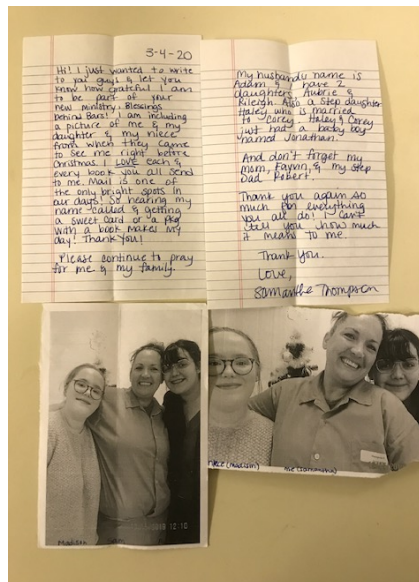 3-4-20
Hi! I just wanted to write
to you guys & let you
know how grateful I am
to be part of your
new ministry, Blessings
behind Bars! I am including
a picture of me & my
daughter & my niece
from when they came
to see me right before
Christmas. I LOVE each &
every book you all send
to me. Mail is one of
the only bright spots in
our days! So hearing my
name called & getting
a sweet card or a pkg
with a book makes my
day! Thank you!
Please continue to pray
for me & my family.
My husbands name is
Adam & I have 2
daughters Aubrie &
Rileigh. Also a step daughter
Haley who is married
to Corey. Haley & Corey
just had a baby boy
named Jonathan.
And don't forget my
mom, & my step
Dad Robert.
Thank you again so
much for everything
you all do! I can't
tell you how much
it means to me.
Thank You.
Love,
Samantha Thompson
Madison
12.10
(madison)
me (samantha)